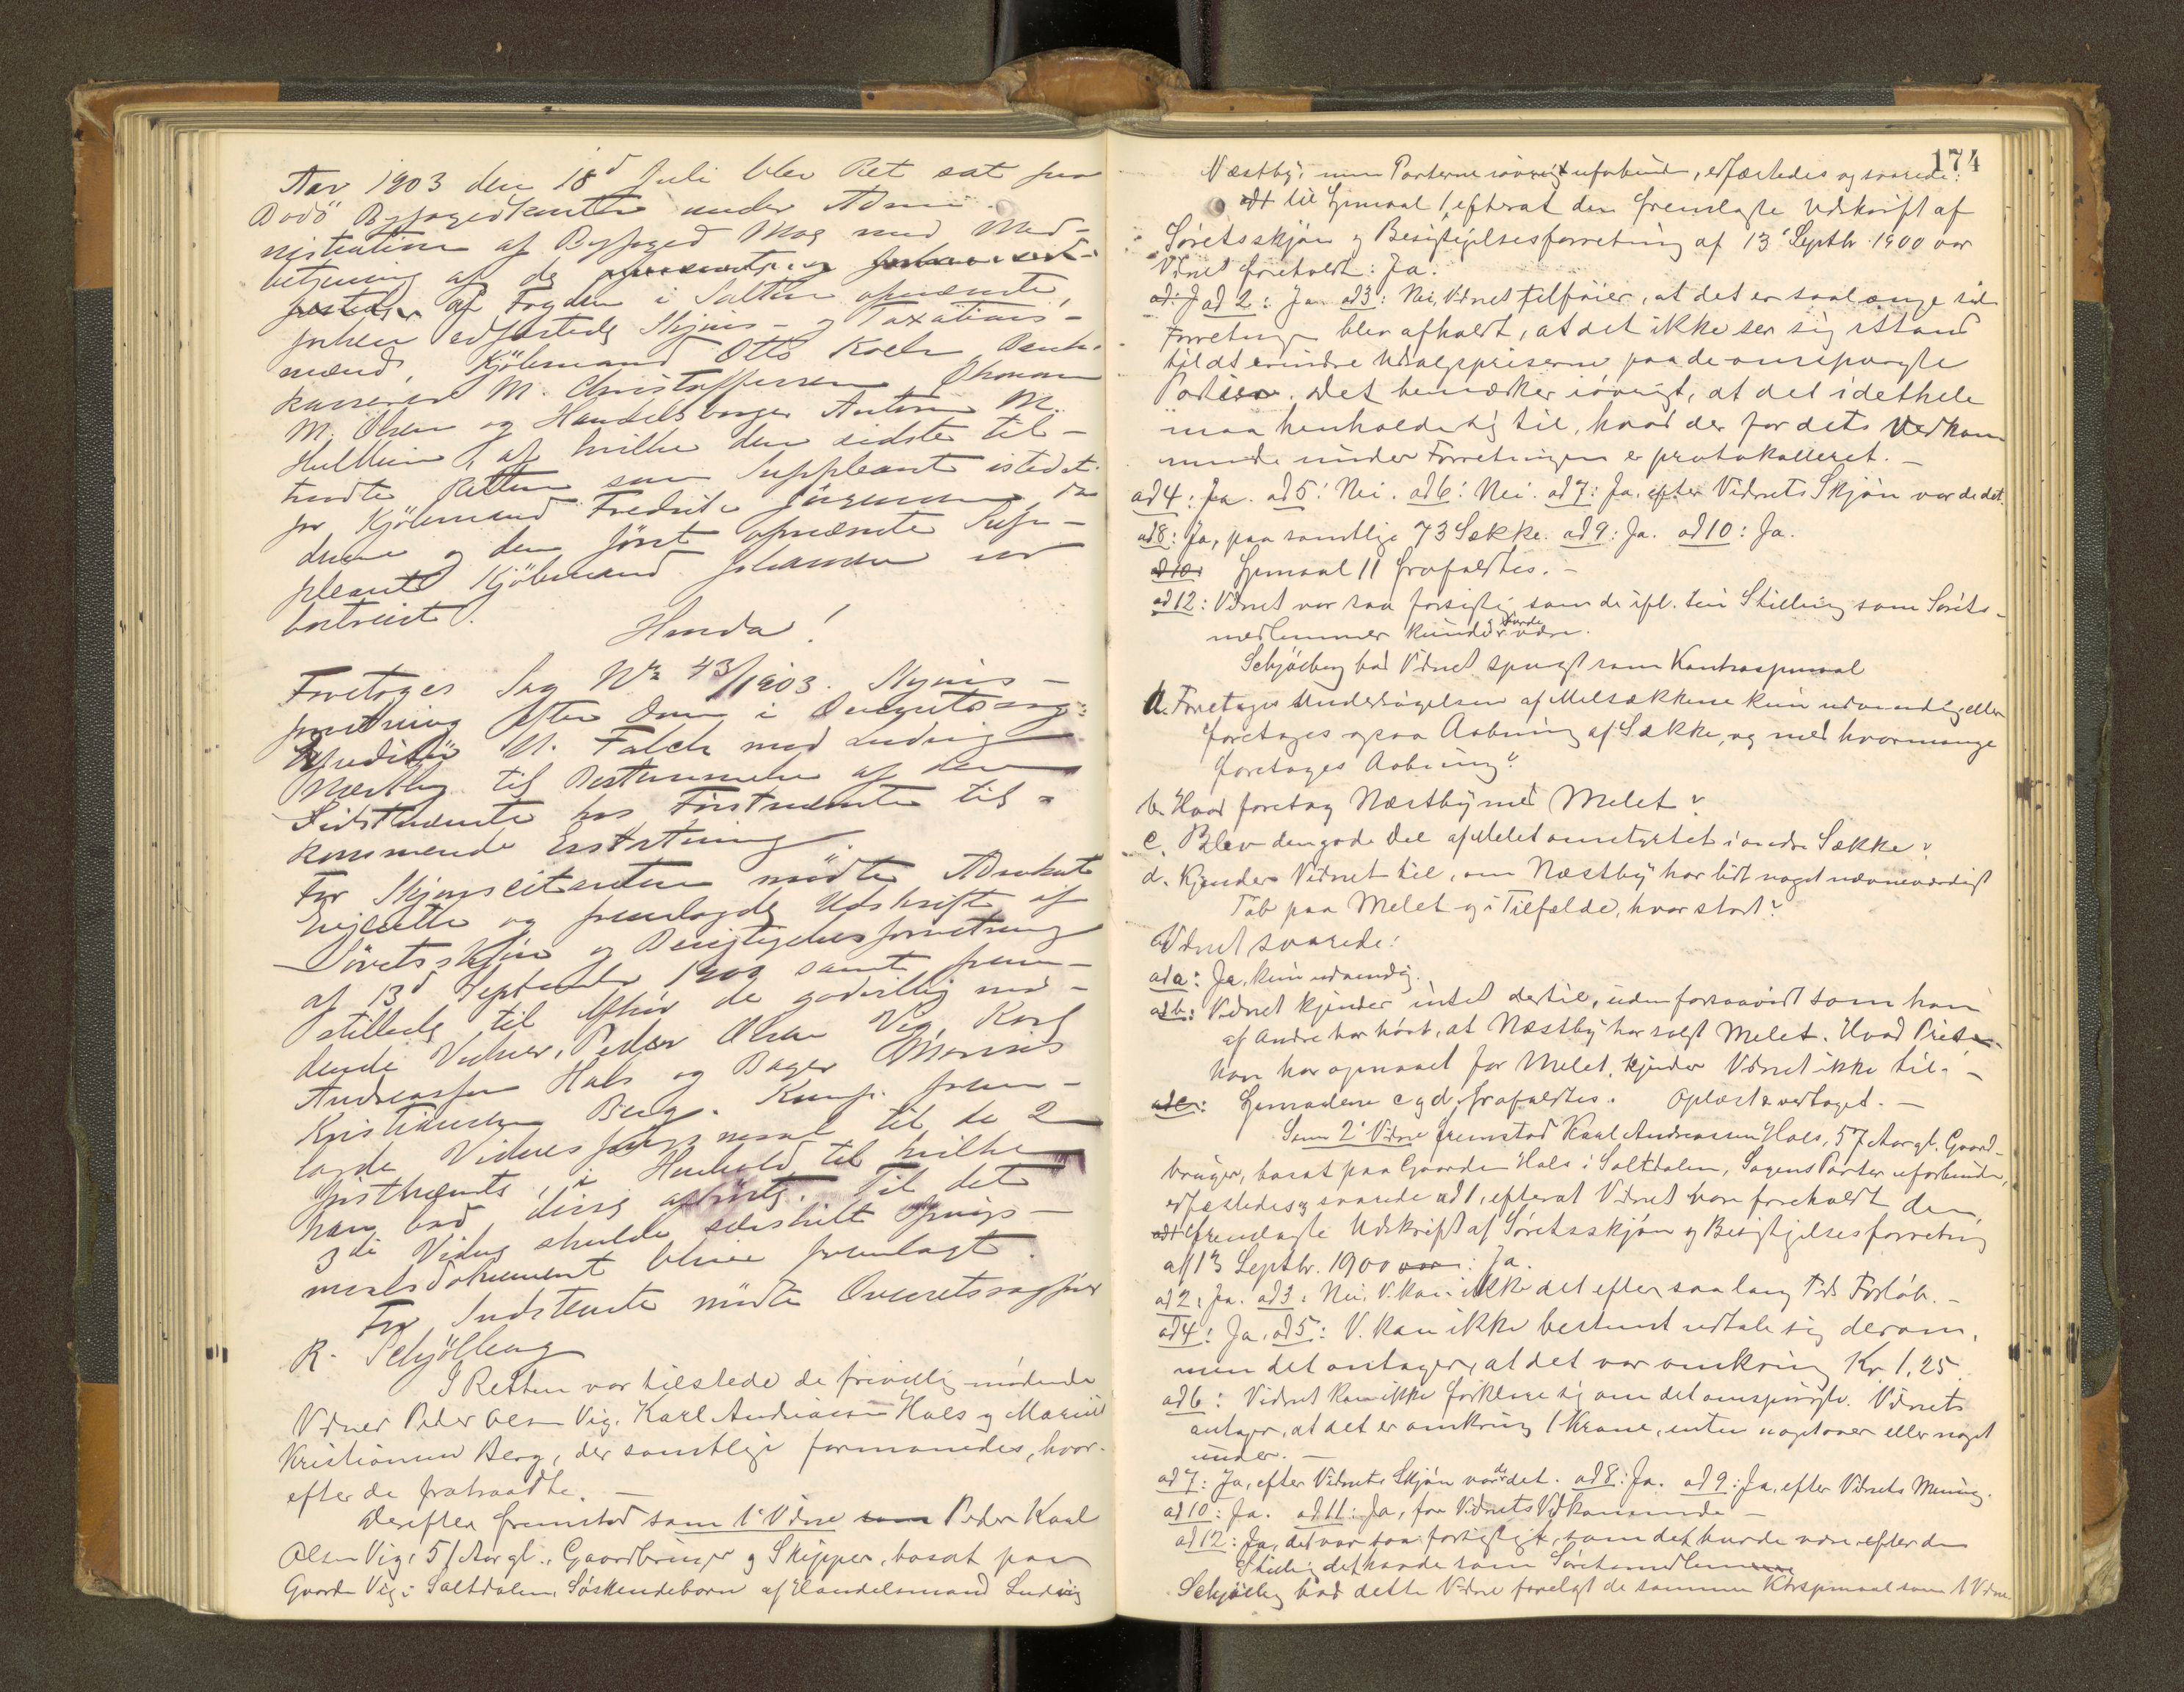 Aar 1903 den 18d Juli blev Ret sat paa
Bodö Byfogedkontor under Admi-
nistration af Byfoged Moe med Med-
betjening af de
af Fogden i Salten opnævnte,
forhen edfæstede Skjöns- og Taxations-
mænd, Kjöbmand Otto Koch, Bank-
kasserer M. Christoffersen, Thomas
M. Olsen og Handelsborger Anton M.
af hvilke den sidste til-
traadte Retten som Suppleant istedet-
for Kjöbmand Fredrik Jörgensen, da
denne og den först opnævnte Sup-
pleant Kjöbmand Johansen er
bortreist.
Hvorda!
Foretoges Sag No 43/1903. Skjöns-
forretning efter Dom i Overretssag:
Expeditör M. Falch mod Ludvig
Næstby til Bestemmelse af den
Sidstnævnte hos Förstnævnte til-
kommende Erstatning.
For Skjönscitanten mödte Advokat
og fremlagde Udskrift af
Söretsskjön og Besigtigelsesforretning
af 13d September 1900 samt frem-
stillede til Afhör de godvillig mö-
dende Vidner, Peder Olsen Vig, Karl
Andreassen Hals og Bager Marius
Kristiansen Berg. Komp. frem-
lagde Vidnespörgsmaal til de 2
förstnævnte, i Henhold til hvilke
han bad disse afhört. Til det
3die Vidne skulde særskilt Spörgs-
maalsdokument blive fremlagt.
For Indstevnte mödte Overretssagförer
R. Schjölberg
I Retten var tilstede de frivillig mödende
Vidner Peder Olsen Vig, Karl Andreassen Hals og Marius
Kristiansen Berg, der samtlige formanedes, hvor-
efter de fratraadte. -
Derefter fremstod som 1' Vidne som Peder Karl
Olsen Vig, 51 Aar gl., Gaardbruger og Skipper, bosat paa
Gaarden Vig i Saltdalen, Söskendebarn af Handelsmand Ludvig
174
Næstby, men Parterne iövrigt uforbunden, edfæstedes og svarede:
ad 1 til Spmaal 1, efterat den fremlagte Udskrift af
Söretsskjön og Besigtigelsesforretning af 13' Septbr. 1900 var
Vidnet foreholdt: Ja.
ad 2: Ja. ad 3: Nei, Vidnet tilföier, at det er saa længe siden
Forretningen blev afholdt, at det ikke ser sig istand
til at erindre Udsalgspriserne paa de omspurgte
Partier. Det bemærker iövrigt, at det i det hele
maa henholde sig til, hvad der for dets Vedkom
mende under Forretningen er protokolleret. -
ad 4: Ja. ad 5: Nei. ad 6: Nei. ad 7: Ja, efter Vidnets Skjön var de det.
ad 8: Ja, paa samtlige 73 Sække. ad 9: Ja. ad 10: Ja.
ad 10: Spmaal 11 frafaldtes. -
ad 12: Vidnet var saa forsigtig, som de ifl. sin Stilling som Sörets-
medlemmer kunde og burde være.
Schjölberg bad Vidnet spurgt som Kontraspmaal
a. Foretoges Undersögelsen af Melsækkene kun udvendig eller
foretoges ogsaa Aabning af Sække, og med hvormange
foretoges Aabning?
b. Hvad foretog Næstby med Melet?
c. Blev den gode Del af Melet omstyrtet i andre Sække?
d. Kjender Vidnet til, om Næstby har lidt noget nævneværdigt
Tab paa Melet og i Tilfælde, hvor stort?
Vidnet svarede:
ad a: Ja, kun udvendig.
ad b: Vidnet kjender intet dertil, uden forsaavidt som han
af Andre har hört, at Næstby har solgt Melet. Hvad Pris
han har opnaaet for Melet, kjender Vidnet ikke til. -
ad c: Spmaalene c og d frafaldtes. Oplæst & vedtaget. -
Som 2' Vidne fremstod Karl Andreassen Hals, 57 Aar gl. Gaard-
bruger, bosat paa Gaarden Hals i Saltdalen, Sagens Parter uforbunden,
edfæstedes og svarede ad 1, efterat Vidnet var foreholdt den
ad 1 fremlagte Udskrift af Söretsskjön og Besigtigelsesforretning
af 13 Septbr. 1900 var: Ja.
ad 2: Ja. ad 3: Nei, V. kan ikke det efter saa lang Tids Forlöb. -
ad 4: Ja. ad 5: V. kan ikke bestemt udtale sig derom,
men det antager, at det var omkring Kr. 1,25
ad 6: Vidnet kan ikke forklare sig om det omspurgte. Vidnet
antager, at det er omkring 1 Krone, enten noget over eller noget
under. -
ad 7: Ja, efter Vidnets Skjön var de det. ad 8: Ja. ad 9: Ja, efter Vidnets Mening.
ad 10: Ja. ad 11: Ja, for Vidnets Vedkommende -
ad 12: Ja, det var saa forsigtigt, som det burde være efter den
Stilling det havde som Söretsmedlem
Schjölberg bad dette Vidne forelagt de samme Ktrspmaal som 1 Vidne